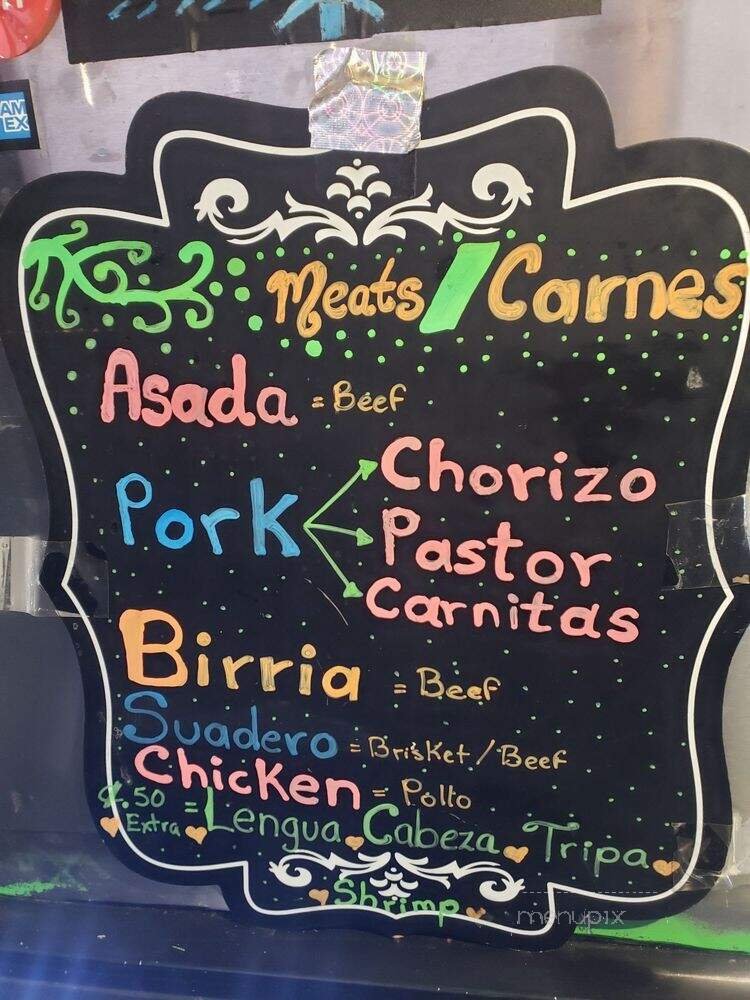 AM
EX
Meats/Carnes
Asada = Beef
Pork
Chorizo
Pastor
Carnitas
Birria = Beef
Suadero = Brisket / Beef
Chicken = Pollo
¢.50 = Lengua Cabeza Tripa
Extra
Shrimp
menupix